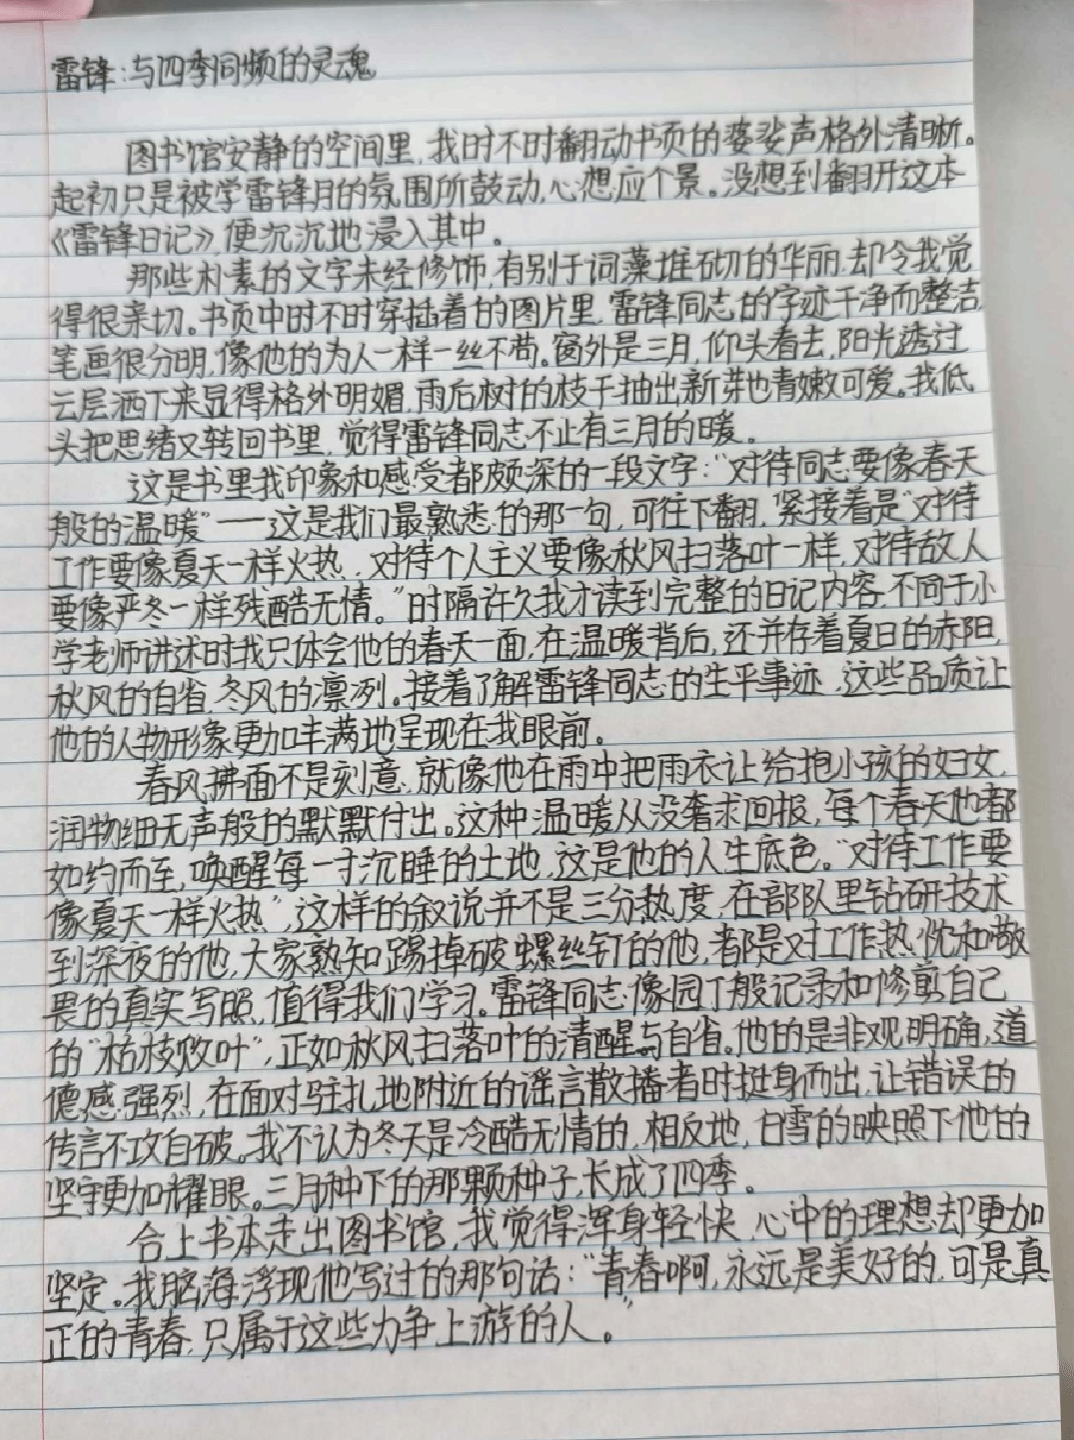 雷锋：与四季同频的灵魂
图书馆安静的空间里，我时不时翻动书页的婆娑声格外清晰。
起初只是被学雷锋月的氛围所鼓动，心想应个景。没想到翻开这本
《雷锋日记》，便沉沉地浸入其中。
那些朴素的文字未经修饰，有别于词藻堆砌的华丽，却令我觉
得很亲切。书页中时不时穿插着的图片里，雷锋同志的字迹干净而整洁，
笔画很分明，像他的为人一样一丝不苟。窗外是三月，仰头看去，阳光透过
云层洒下来显得格外明媚，雨后树的枝干抽出新芽也青嫩可爱。我低
头把思绪又转回书里，觉得雷锋同志不止有三月的暖。
这是书里我印象和感受都颇深的一段文字：“对待同志要像春天
般的温暖”——这是我们最熟悉的那一句，可往下翻，紧接着是“对待
工作要像夏天一样火热，对待个人主义要像秋风扫落叶一样，对待敌人
要像严冬一样残酷无情。”时隔许久我才读到完整的日记内容，不同于小
学老师讲述时我只体会他的春天一面，在温暖背后，还并存着夏日的赤阳，
秋风的自省，冬风的凛冽。接着了解雷锋同志的生平事迹，这些品质让
他的人物形象更加丰满地呈现在我眼前。
春风拂面不是刻意，就像他在雨中把雨衣让给抱小孩的妇女，
润物细无声般的默默付出。这种温暖从没奢求回报，每个春天他都
如约而至，唤醒每一寸沉睡的土地，这是他的人生底色。“对待工作要
像夏天一样火热”，这样的叙说并不是三分热度，在部队里钻研技术
到深夜的他，大家熟知踢掉破螺丝钉的他，都是对工作热忱和敬
畏的真实写照，值得我们学习。雷锋同志像园丁般记录和修剪自己
的“枯枝败叶”，正如秋风扫落叶的清醒与自省。他的是非观明确，道
德感强烈，在面对驻扎地附近的谣言散播者时挺身而出，让错误的
传言不攻自破。我不认为冬天是冷酷无情的，相反地，白雪的映照下他的
坚守更加耀眼。三月种下的那颗种子，长成了四季。
合上书本走出图书馆，我觉得浑身轻快，心中的理想却更加
坚定。我脑海浮现他写过的那句话：“青春啊，永远是美好的，可是真
正的青春，只属于这些力争上游的人。”